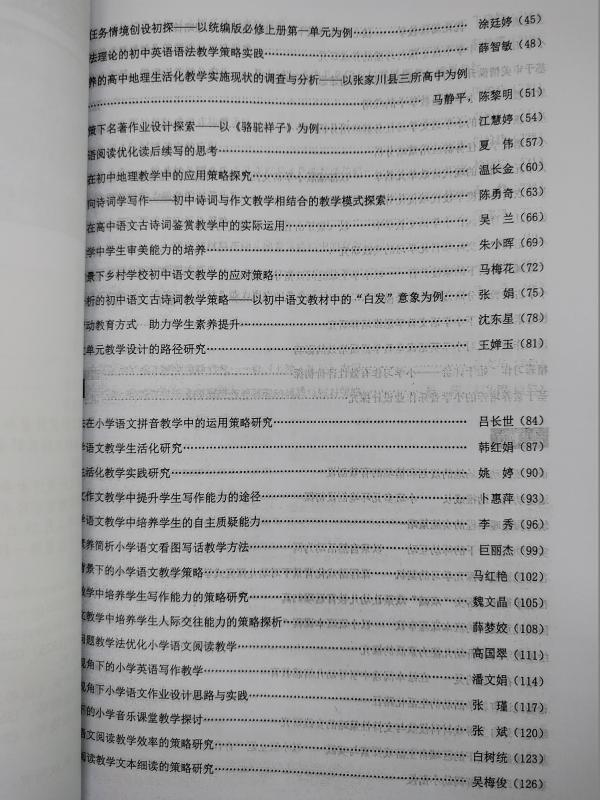 任务情境创设初探——以统编版必修上册第一单元为例 涂廷婷（45）
法理论的初中英语语法教学策略实践 薛智敏（48）
养的高中地理生活化教学实施现状的调查与分析——以张家川县三所高中为例
马静平，陈黎明（51）
策下名著作业设计探索——以《骆驼祥子》为例 江慧婷（54）
语阅读优化读后续写的思考 夏　伟（57）
在初中地理教学中的应用策略探究 温长金（60）
向诗词学写作——初中诗词与作文教学相结合的教学模式探索 陈勇奇（63）
在高中语文古诗词鉴赏教学中的实际运用 吴　兰（66）
学中学生审美能力的培养 朱小晖（69）
景下乡村学校初中语文教学的应对策略 马梅花（72）
析的初中语文古诗词教学策略——以初中语文教材中的“白发”意象为例 张　娟（75）
动教育方式　助力学生素养提升 沈东星（78）
单元教学设计的路径研究 王婵玉（81）
在小学语文拼音教学中的运用策略研究 吕长世（84）
语文教学生活化研究 韩红娟（87）
活化教学实践研究 姚　婷（90）
作文教学中提升学生写作能力的途径 卜惠萍（93）
语文教学中培养学生的自主质疑能力 李　秀（96）
素养简析小学语文看图写话教学方法 巨丽杰（99）
背景下的小学语文教学策略 马红艳（102）
教学中培养学生写作能力的策略研究 魏文晶（105）
文教学中培养学生人际交往能力的策略探析 薛梦姣（108）
问题教学法优化小学语文阅读教学 高国翠（111）
视角下的小学英语写作教学 潘文娟（114）
视角下小学语文作业设计思路与实践 张　瑾（117）
下的小学音乐课堂教学探讨 张　斌（120）
语文阅读教学效率的策略研究 白树统（123）
阅读教学文本细读的策略研究 吴梅俊（126）